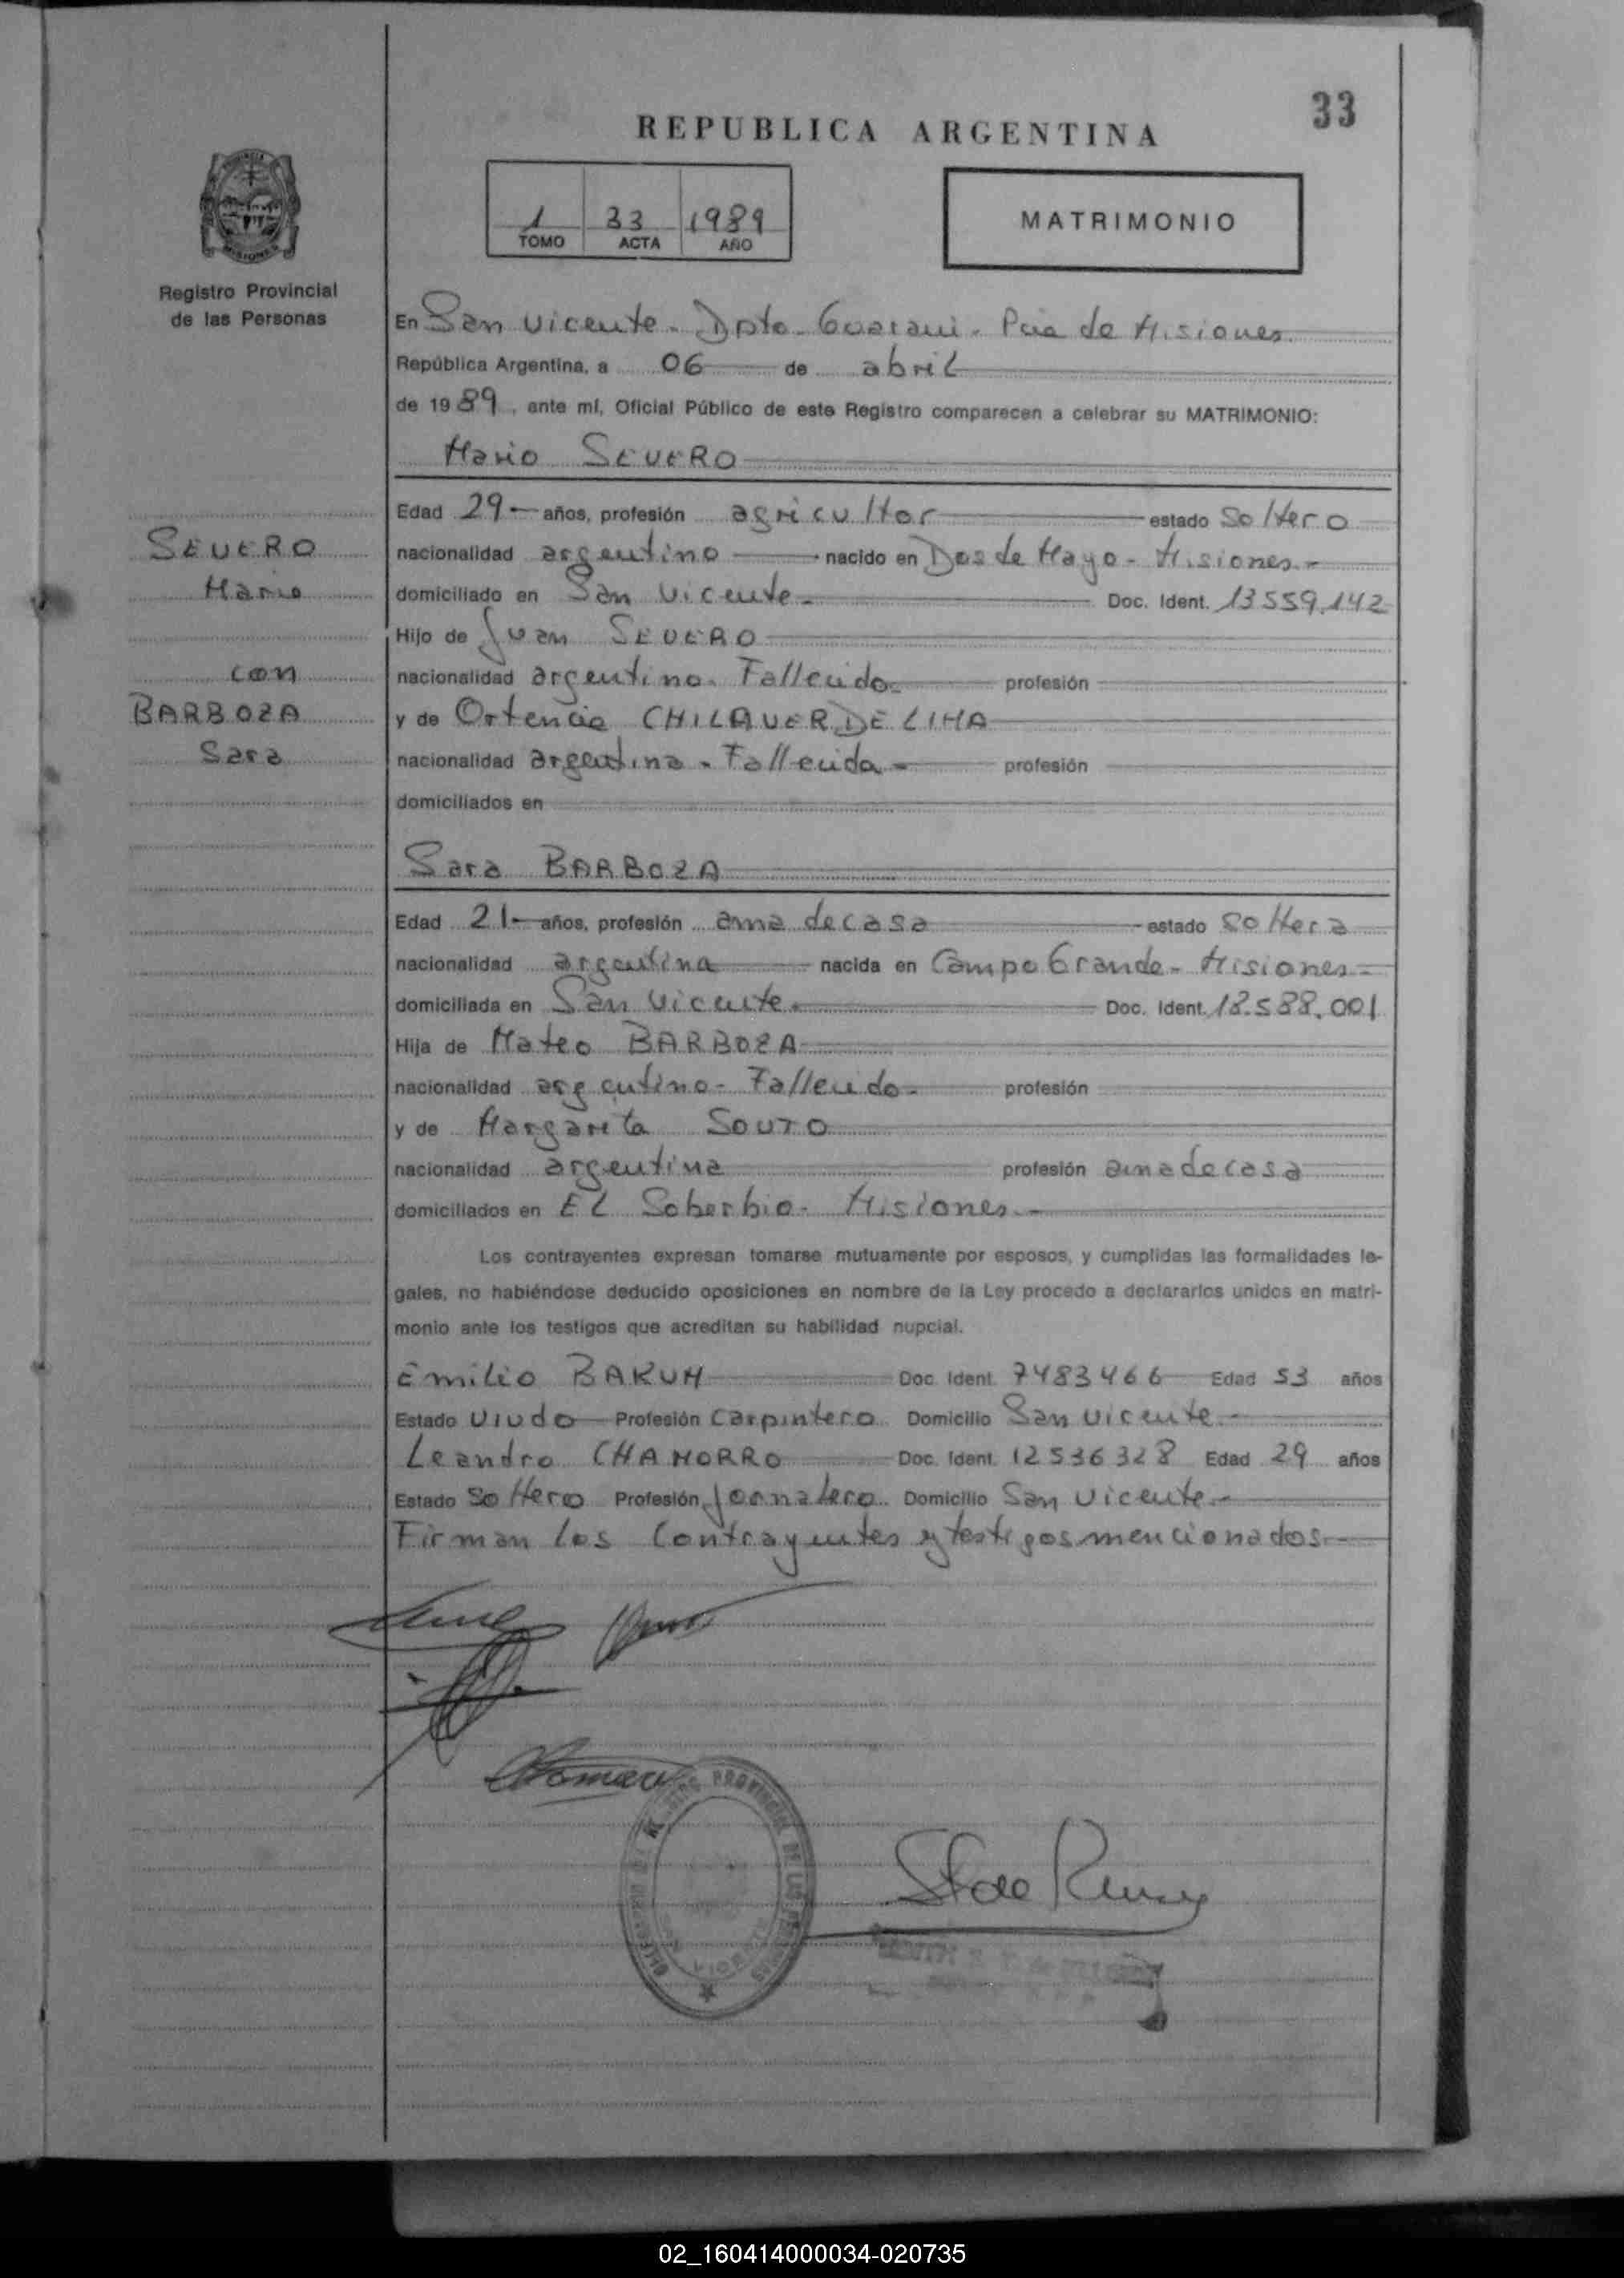 33
REPUBLICA ARGENTINA
1 33 1989
TOMO ACTA AÑO
MATRIMONIO
PROVINCIA
MISIONES
Registro Provincial
de las Personas
En San Vicente - Dpto - Guarani - Pcia de Misiones
República Argentina, a 06 de abril
de 1989, ante mí, Oficial Público de este Registro comparecen a celebrar su MATRIMONIO:
Mario SEVERO
Edad 29 años, profesión agricultor estado soltero
nacionalidad argentino nacido en Dos de Mayo - Misiones -
domiciliado en San Vicente - Doc. Ident. 13559.142
Hijo de Juan SEVERO
nacionalidad argentino. Fallecido - profesión
y de Ortencia CHILAVER DE LIMA
nacionalidad argentina - Fallecida - profesión
domiciliados en
SEVERO
Mario
con
BARBOZA
Sara
Sara BARBOZA
Edad 21 - años, profesión ama de casa estado soltera
nacionalidad argentina nacida en Campo Grande - Misiones -
domiciliada en San Vicente - Doc. Ident. 18.588.001
Hija de Mateo BARBOZA
nacionalidad argentino - Fallecido - profesión
y de Margarita SOUTO
nacionalidad argentina profesión ama de casa
domiciliados en EL Soberbio - Misiones -
Los contrayentes expresan tomarse mutuamente por esposos, y cumplidas las formalidades le-
gales, no habiéndose deducido oposiciones en nombre de la Ley procedo a declararlos unidos en matri-
monio ante los testigos que acreditan su habilidad nupcial.
Emilio BAKUM Doc. Ident. 7483466 Edad 53 años
Estado Viudo Profesión Carpintero Domicilio San Vicente -
Leandro CHAMORRO Doc. Ident. 12536328 Edad 29 años
Estado Soltero Profesión Jornalero Domicilio San Vicente -
Firman los Contrayentes y testigos mencionados
02_160414000034-020735